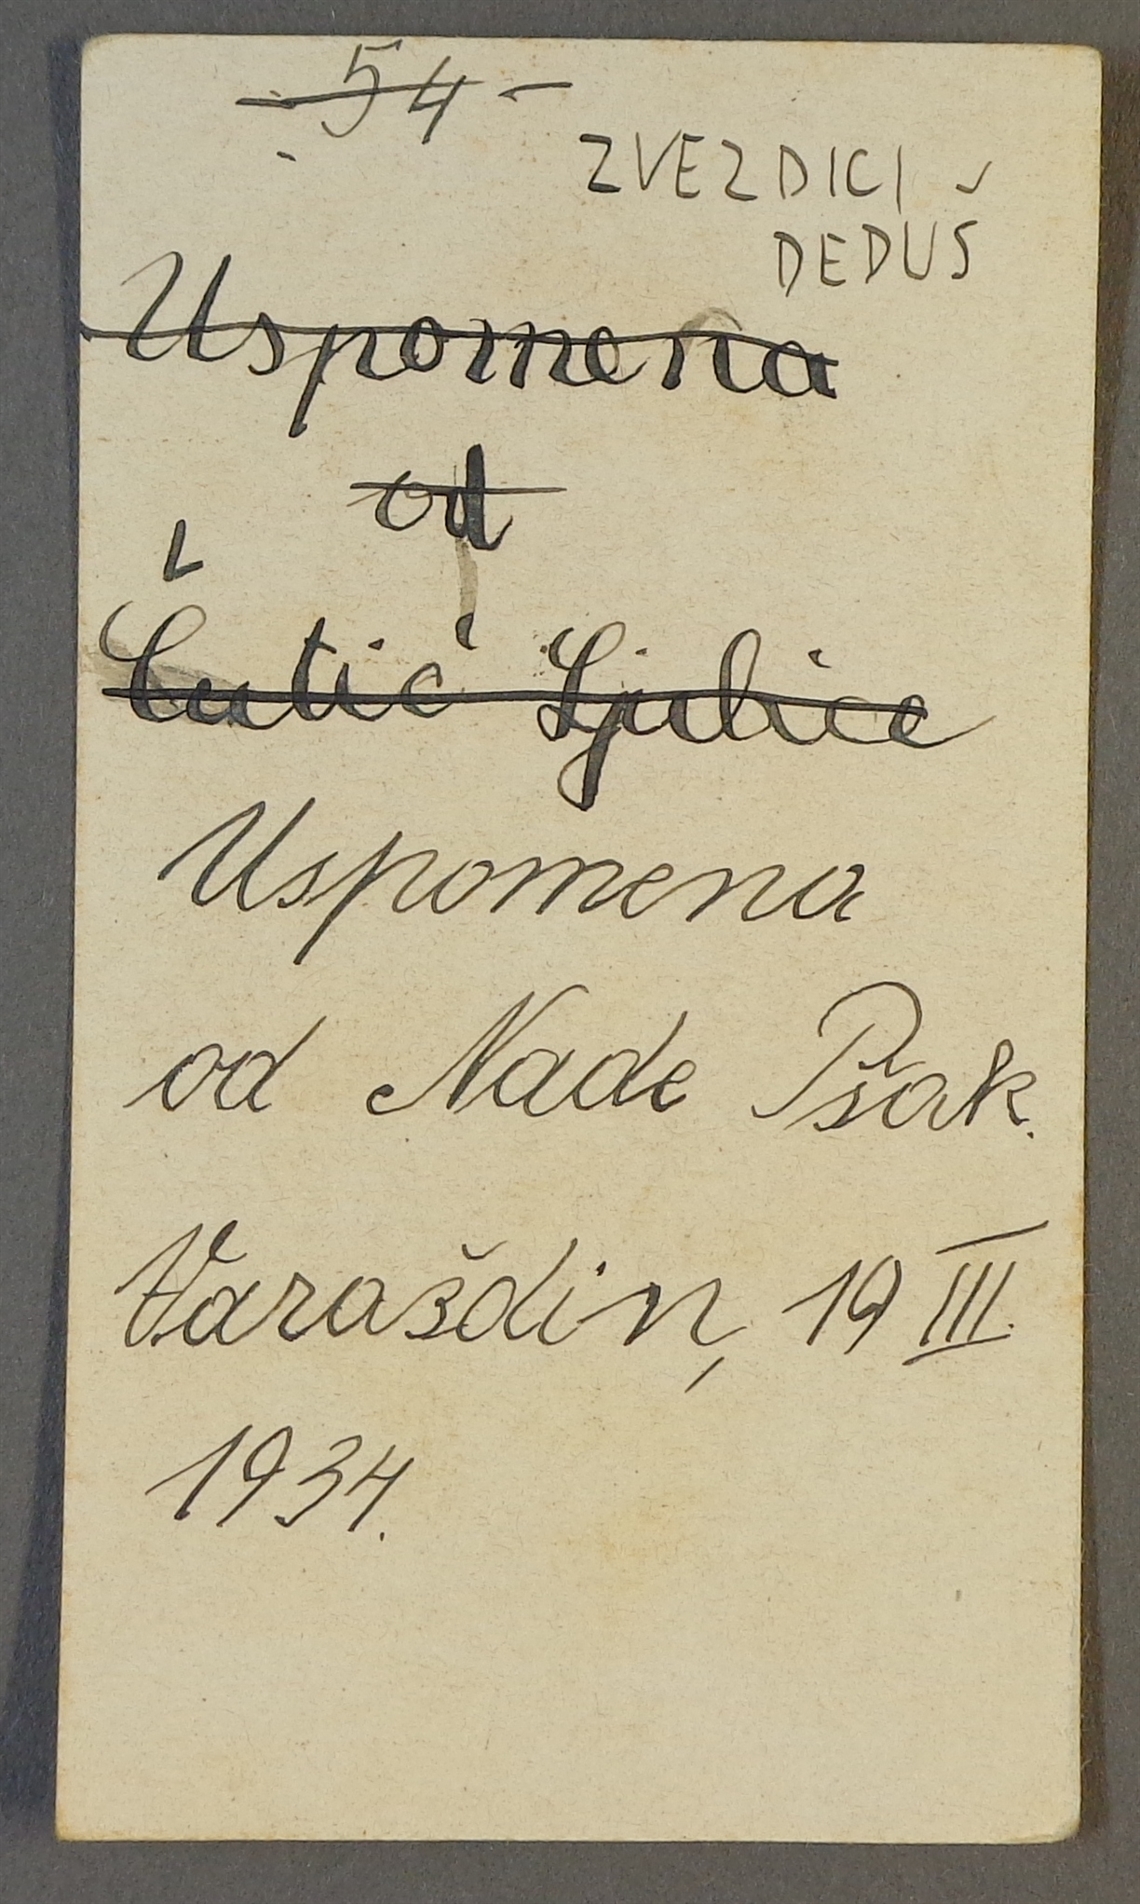 54 -
ZVEZDICI
DEDUŠ
Uspomena
od
Čutić Ljubice
Uspomena
od Nade Pšak.
Varaždin, 19 III.
1934.